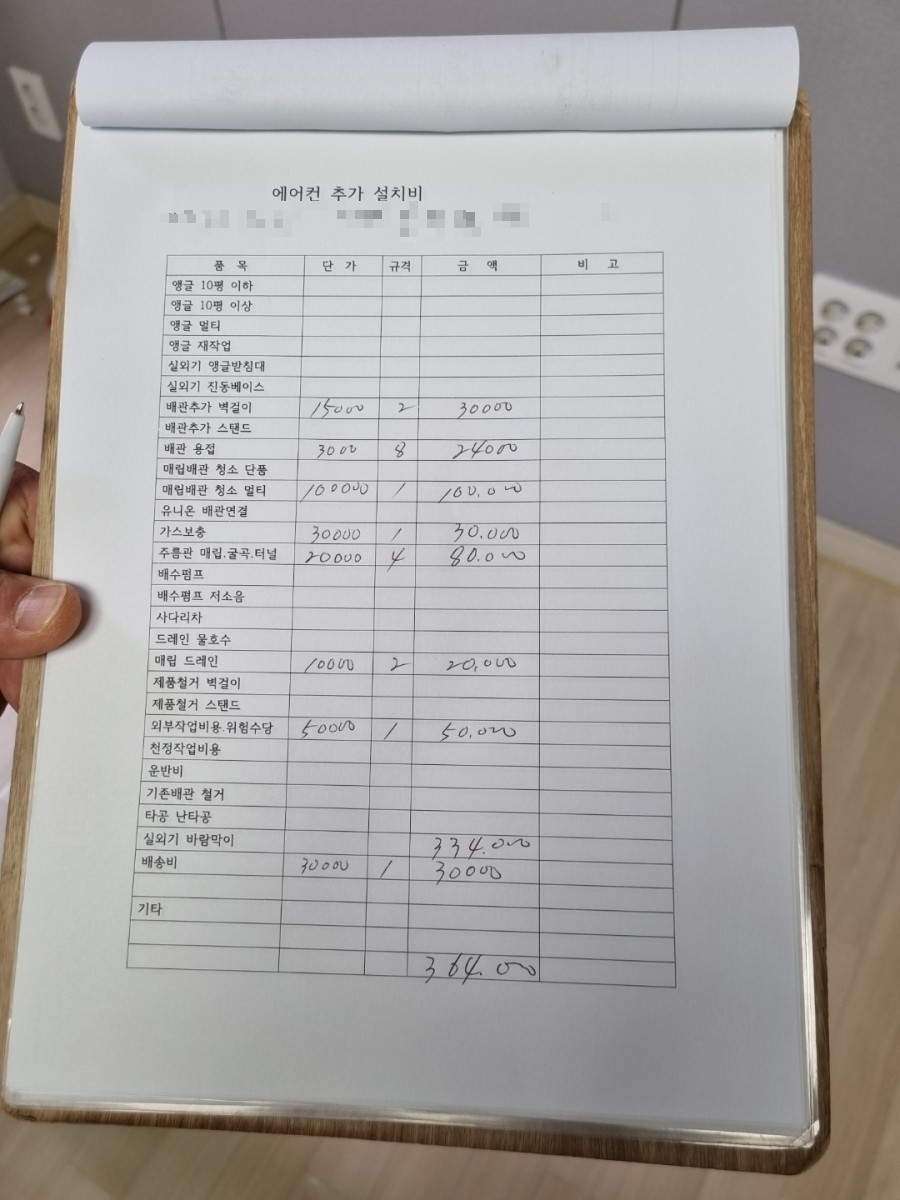 에어컨 추가 설치비
품 목 단 가 규격 금 액 비 고
앵글 10평 이하
앵글 10평 이상
앵글 멀티
앵글 재작업
실외기 앵글받침대
실외기 진동베이스
배관추가 벽걸이 15000 2 30000
배관추가 스탠드
배관 용접 3000 8 24000
매립배관 청소 단품
매립배관 청소 멀티 100000 1 100.000
유니온 배관연결
가스보충 30000 1 30.000
주름관 매립.굴곡.터널 20000 4 80.000
배수펌프
배수펌프 저소음
사다리차
드레인 물호수
매립 드레인 10000 2 20,000
제품철거 벽걸이
제품철거 스탠드
외부작업비용.위험수당 50000 1 50.000
천정작업비용
운반비
기존배관 철거
타공 난타공
실외기 바람막이 334.000
배송비 30000 1 30000
기타
364.000